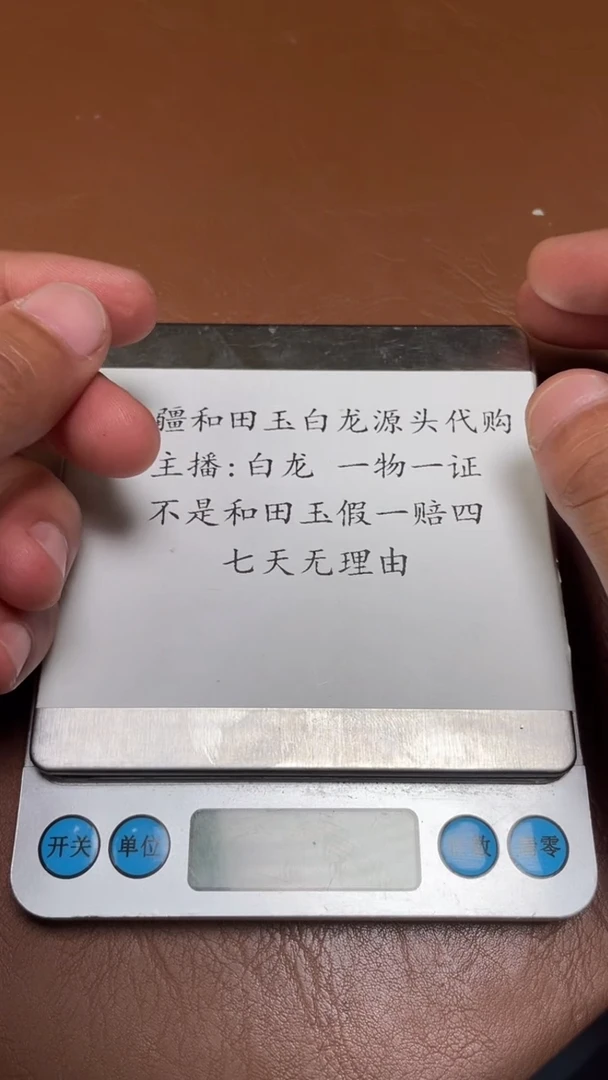 疆和田玉白龙源头代购
主播:白龙 一物一证
不是和田玉假一赔四
七天无理由
开关 单位 零